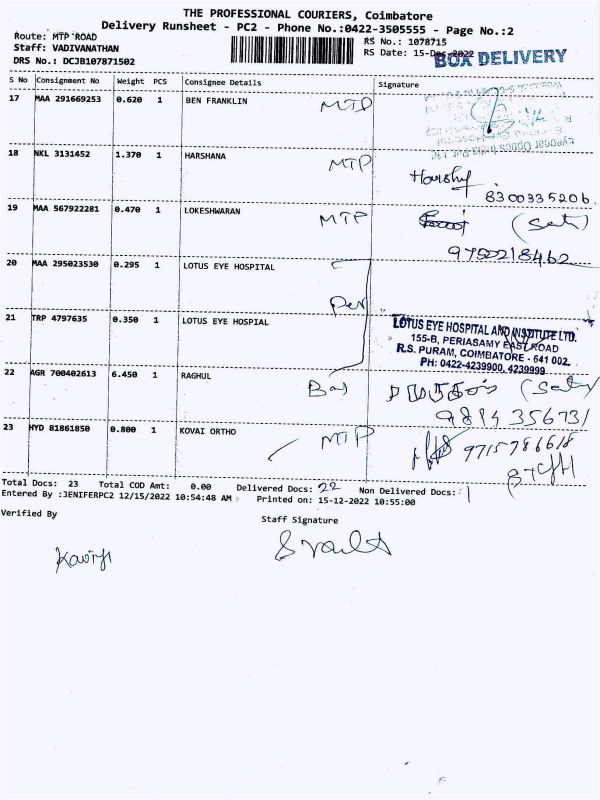 THE PROFESSIONAL COURIERS, Coimbatore
Delivery Runsheet - PC2 - Phone No.:0422-3505555 - Page No.:2
Route: MTP ROAD
Staff: VADIVANATHAN
DRS No.: DCJB107871502
RS No.: 1078715
RS Date: 15-Dec-2022
BOX DELIVERY
S No Consignment No Weight PCS Consignee Details Signature
17 MAA 291669253 0.620 1 BEN FRANKLIN MTP
18 NKL 3131452 1.370 1 HARSHANA MTP
8300335206.
19 MAA 567922281 0.470 1 LOKESHWARAN MTP
9750218462
20 MAA 295023530 0.295 1 LOTUS EYE HOSPITAL
21 TRP 4797635 0.350 1 LOTUS EYE HOSPIAL
LOTUS EYE HOSPITAL AND INSTITUTE LTD.
155-B, PERIASAMY EAST ROAD
R.S. PURAM, COIMBATORE - 641 002.
PH: 0422-4239900, 4239999
22 AGR 700402613 6.450 1 RAGHUL
23 HYD 81861850 0.800 1 KOVAI ORTHO MTP
9715786618
Total Docs: 23 Total COD Amt: 0.00 Delivered Docs: 22 Non Delivered Docs: 1
Entered By :JENIFERPC2 12/15/2022 10:54:48 AM Printed on: 15-12-2022 10:55:00
Verified By
Staff Signature